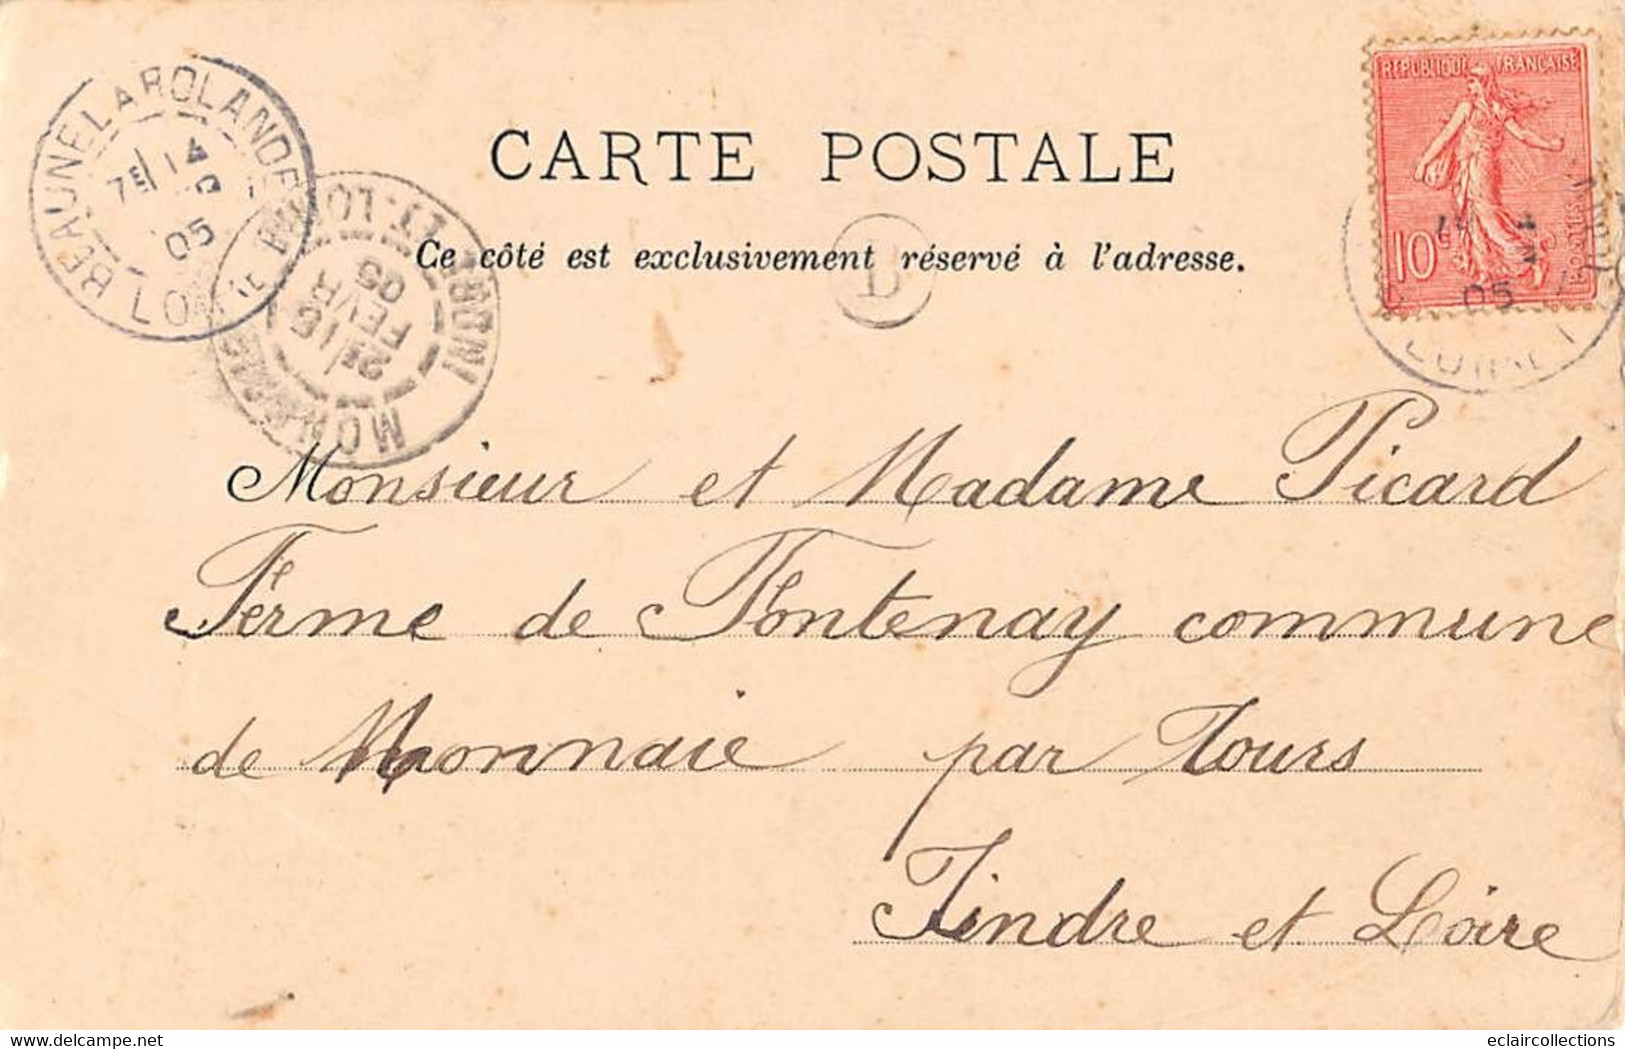 CARTE POSTALE
Ce côté est exclusivement réservé à l'adresse.
REPUBLIQUE FRANCAISE
10c
BEAUNE LA ROLANDE
7 14
05
LOIRET
MONNAIE
INDRE-ET-LOIRE
2 16
FEVR
05
B
14
05
LOIRET
Monsieur et Madame Picard
Ferme de Fontenay commune
de Monnaie par Tours
Jindre et Loire
eclaircollections